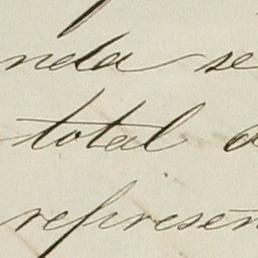 nda se
total d
represen